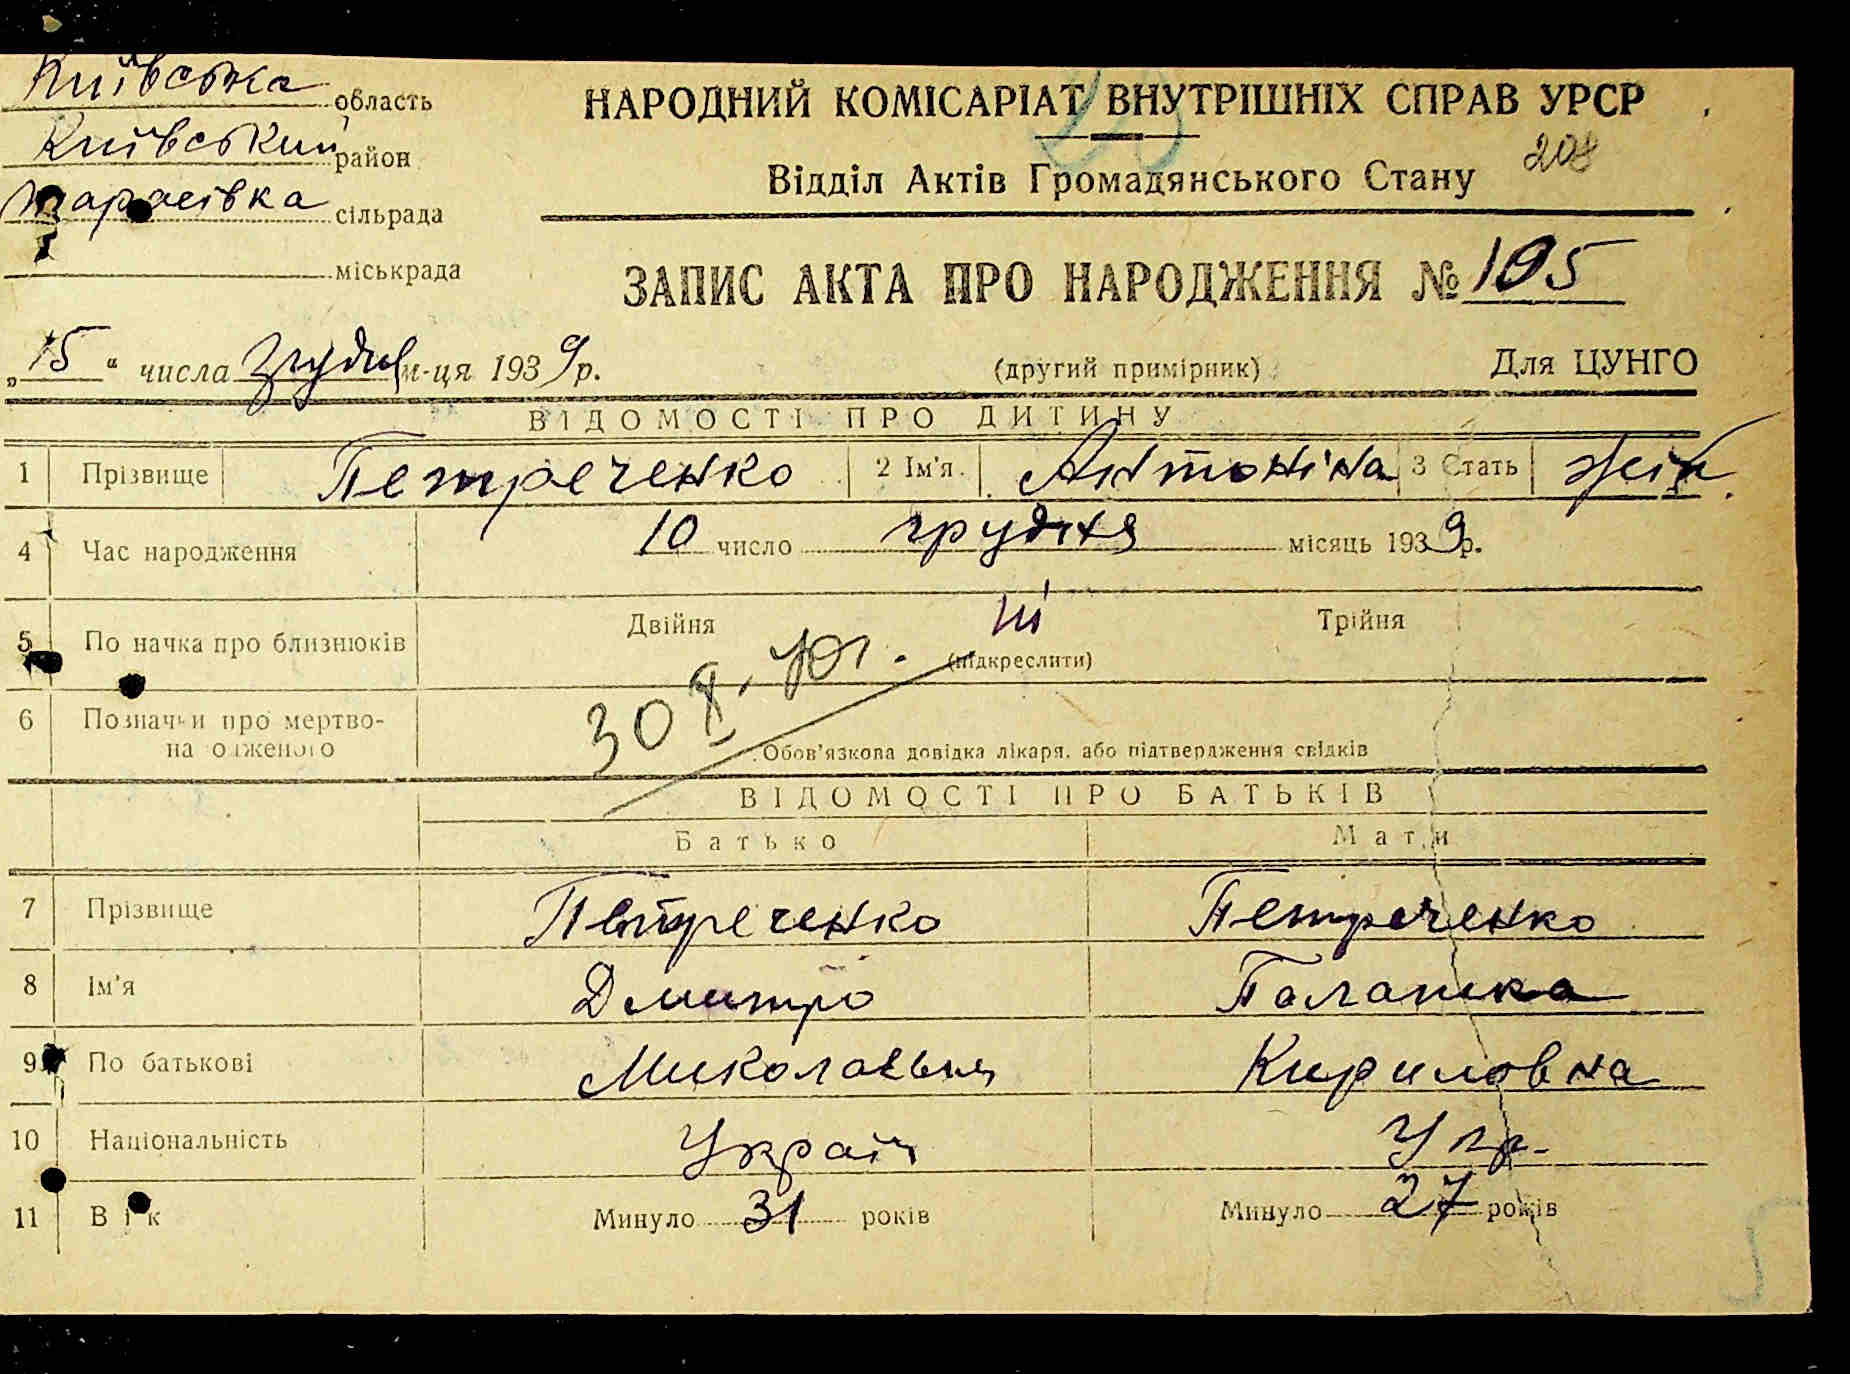 Київська область
НАРОДНИЙ КОМІСАРІАТ ВНУТРІШНІХ СПРАВ УРСР
Київський район
Відділ Актів Громадянського Стану
208
Тарасівка сільрада
міськрада
ЗАПИС АКТА ПРО НАРОДЖЕННЯ № 195
„15“ числа грудня м-ця 1939 р.
(другий примірник)
Для ЦУНГО
ВІДОМОСТІ ПРО ДИТИНУ
1 Прізвище Петреченко 2 Ім'я Антоніна 3 Стать жін.
4 Час народження 10 число грудня місяць 1939 р.
5 По начка про близнюків Двійня ні Трійня
(підкреслити)
30 X. 40 г.
6 Позначки про мертво-
на одженого
Обов'язкова довідка лікаря, або підтвердження свідків
ВІДОМОСТІ ПРО БАТЬКІВ
Батько Мати
7 Прізвище Петреченко Петреченко
8 Ім'я Дмитро Палажка
9 По батькові Миколаєвич Кириловна
10 Національність Україн Укр.
11 Вік Минуло 31 років Минуло 27 років